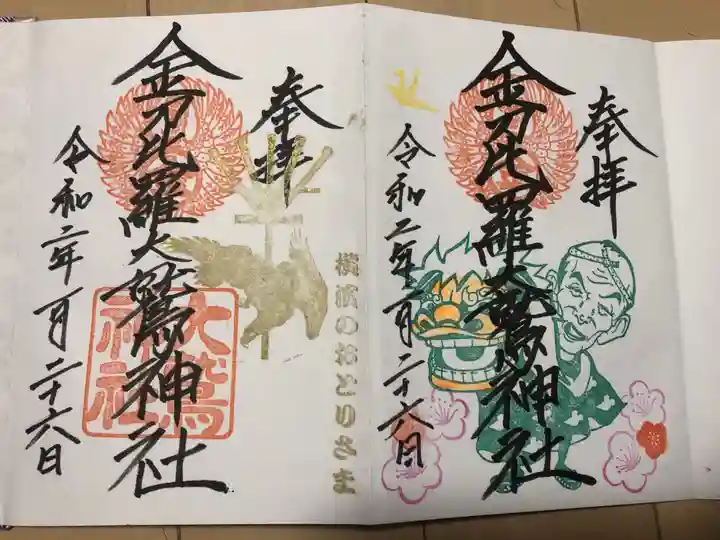 奉拝
金刀比羅大鷲神社
令和二年一月二十六日
横濱のおとりさま
奉拝
金刀比羅大鷲神社
大鷲神社
令和二年一月二十六日